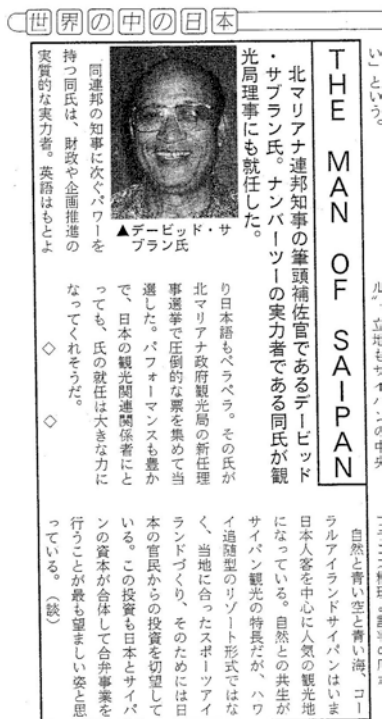 世界の中の日本
い」という。
THE MAN OF SAIPAN
北マリアナ連邦知事の筆頭補佐官であるデービッド
・サブラン氏。ナンバーツーの実力者である同氏が観
光局理事にも就任した。
▲デービッド・サ
ブラン氏
同連邦の知事に次ぐパワーを
持つ同氏は、財政や企画推進の
実質的な実力者。英語はもとよ
り日本語もペラペラ。その氏が
北マリアナ政府観光局の新任理
事選挙で圧倒的な票を集めて当
選した。パフォーマンスも豊か
で、日本の観光関連関係者にと
っても、氏の就任は大きな力に
なってくれそうだ。
◇ ◇
自然と青い空と青い海、コー
ラルアイランドサイパンはいま
日本人客を中心に人気の観光地
になっている。自然との共生が
サイパン観光の特長だが、ハワ
イ追随型のリゾート形式ではな
く、当地に合ったスポーツアイ
ランドづくり、そのためには日
本の官民からの投資を切望して
いる。この投資も日本とサイパ
ンの資本が合体して合弁事業を
行うことが最も望ましい姿と思
っている。（談）